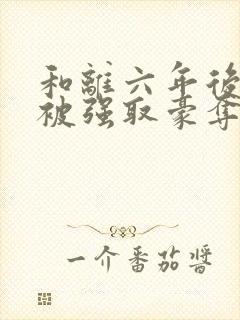 和離六年後
被强取豪奪
一介番茄醬